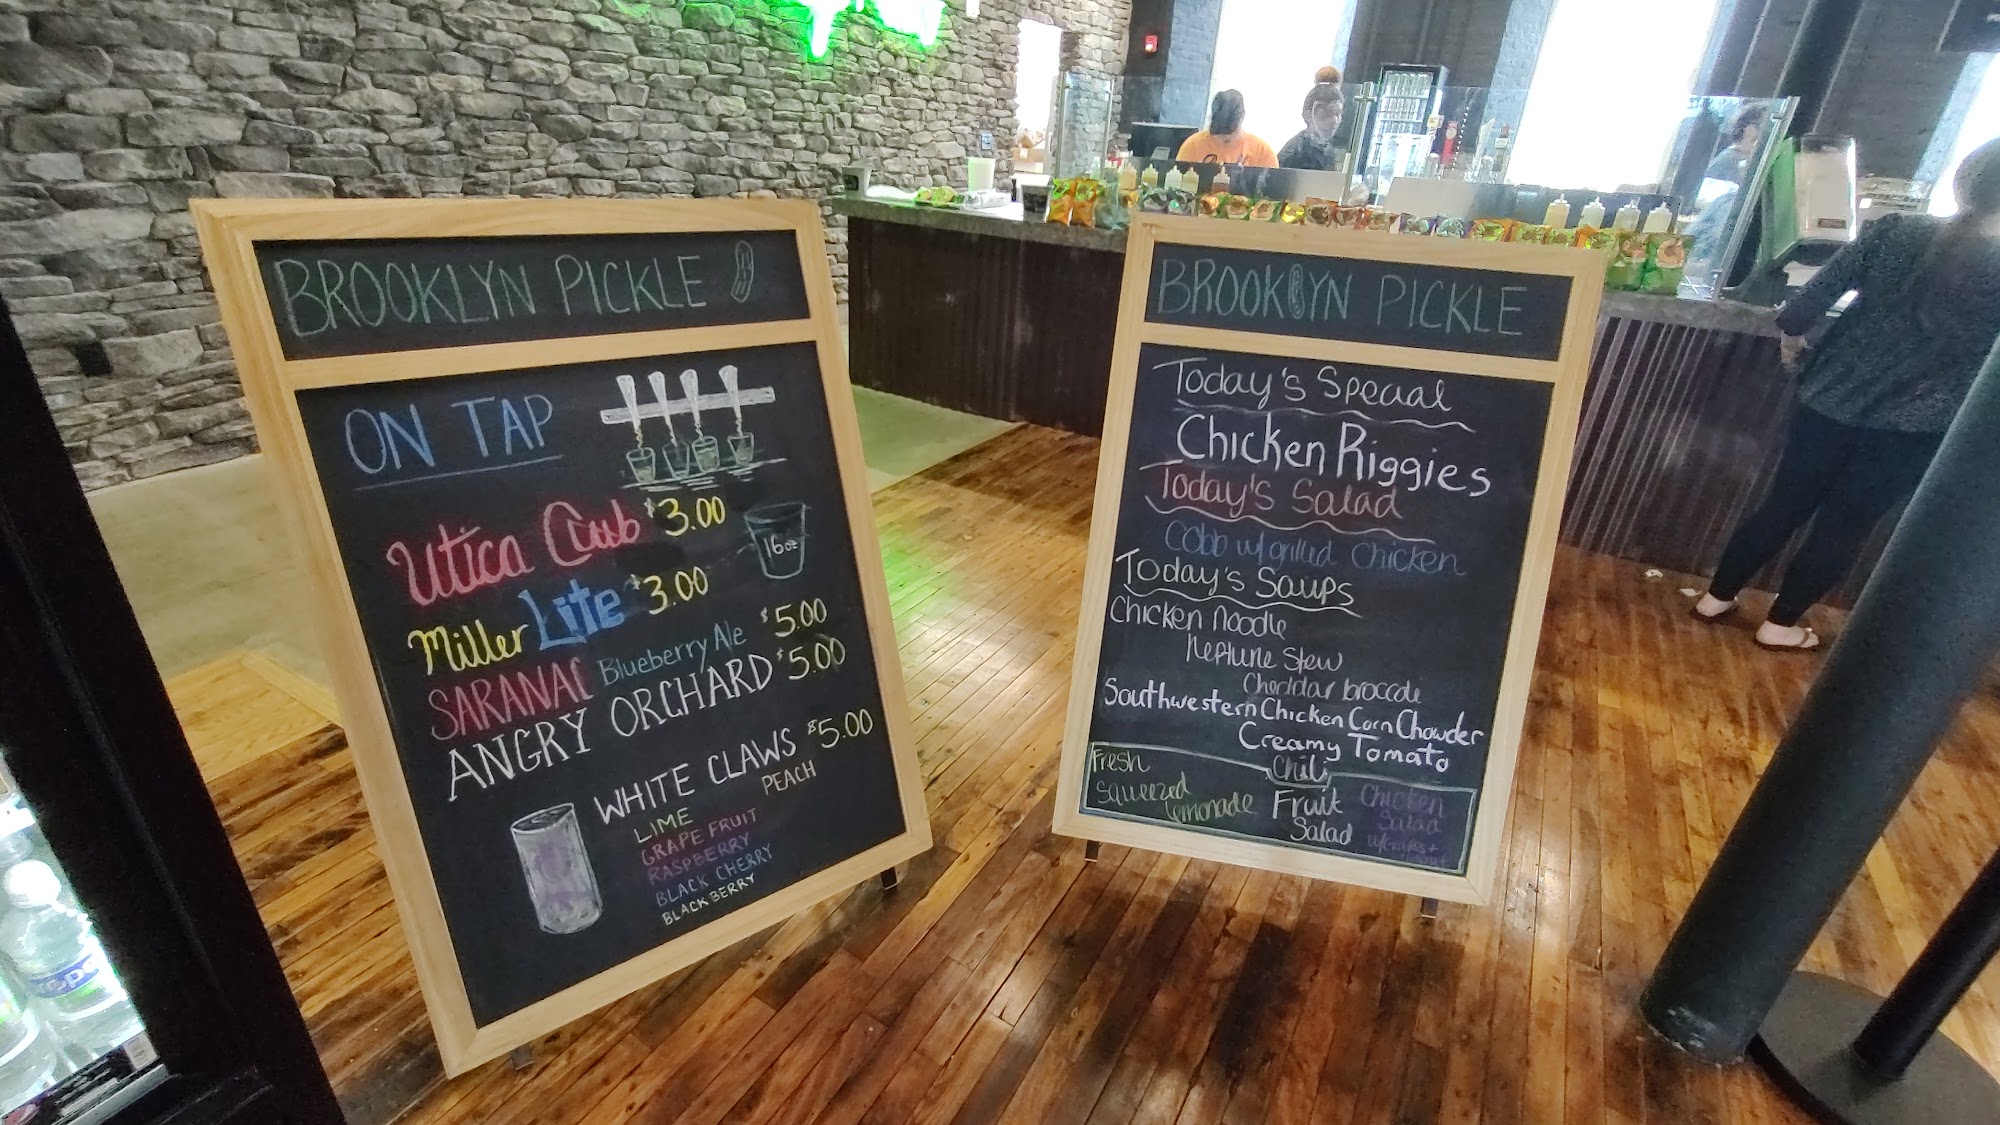 BROOKLYN PICKLE
ON TAP
Utica Club $3.00
16oz
Miller Lite $3.00
SARANAC Blueberry Ale $5.00
ANGRY ORCHARD $5.00
WHITE CLAWS $5.00
LIME PEACH
GRAPE FRUIT
RASPBERRY
BLACK CHERRY
BLACKBERRY
BROOKLYN PICKLE
Today's Special
Chicken Riggies
Today's Salad
Cobb w/grilled chicken
Today's Soups
Chicken Noodle
Neptune Stew
Cheddar broccoli
Southwestern Chicken Corn Chowder
Creamy Tomato
Chili
Fresh
Squeezed
Lemonade
Fruit
Salad
Chicken
Salad
w/Grapes +